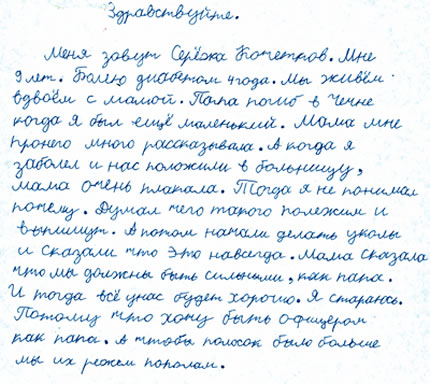 Здравствуйте.
Меня зовут Серёжа Кочетков. Мне
9 лет. Болею диабетом 4 года. Мы живём
вдвоём с мамой. Папа погиб в Чечне
когда я был ещё маленький. Мама мне
пронего много рассказывала. А когда я
заболел и нас положили в больницу,
мама очень плакала. Тогда я не понимал
почему. Думал чего такого полежим и
выпишут. А потом начали делать уколы
и сказали что это навсегда. Мама сказала
что мы должны быть сильными, как папа.
И тогда всё унас будет хорошо. Я стараюсь.
Потому что хочу быть офицером
как папа. А чтобы полосок было больше
мы их режем пополам.